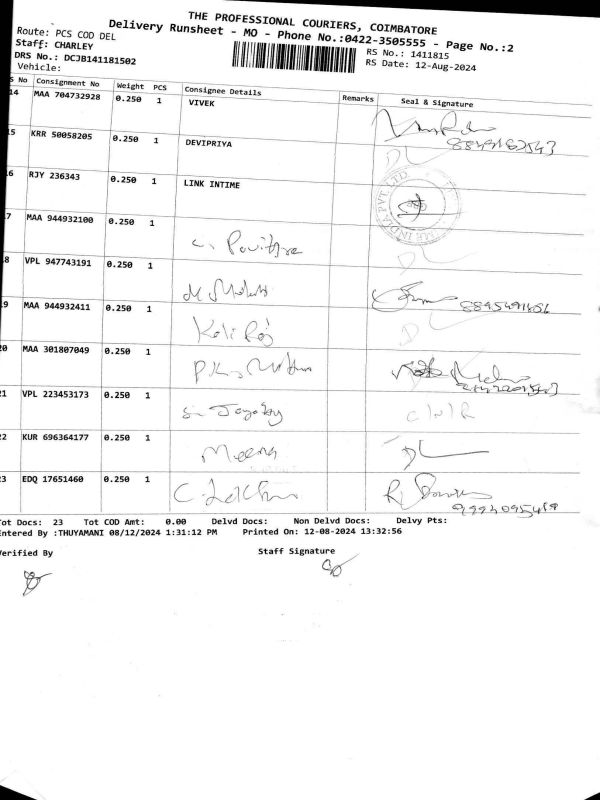 THE PROFESSIONAL COURIERS, COIMBATORE
Delivery Runsheet - MO - Phone No.:0422-3505555 - Page No.:2
Route: PCS COD DEL
Staff: CHARLEY
RS No.: 1411815
DRS No.: DCJB141181502
RS Date: 12-Aug-2024
Vehicle:
S No Consignment No Weight PCS Consignee Details Remarks Seal & Signature
14 MAA 704732928 0.250 1 VIVEK
15 KRR 50058205 0.250 1 DEVIPRIYA
DL
6 RJY 236343 0.250 1 LINK INTIME
INDIA PVT. LTD.
7 MAA 944932100 0.250 1 Pavithra
DL
8 VPL 947743191 0.250 1
9 MAA 944932411 0.250 1 Kali Raj
DL
20 MAA 301807049 0.250 1
21 VPL 223453173 0.250 1
22 KUR 696364177 0.250 1 Meena
DL
23 EDQ 17651460 0.250 1
Tot Docs: 23 Tot COD Amt: 0.00 Delvd Docs: Non Delvd Docs: Delvy Pts:
Entered By :THUYAMANI 08/12/2024 1:31:12 PM Printed On: 12-08-2024 13:32:56
Verified By Staff Signature